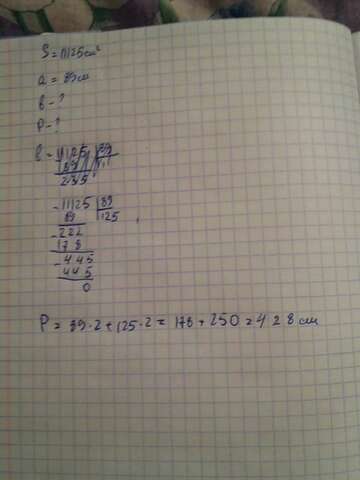 S = 11125 см²
a = 89 см
в - ?
P - ?
в =
- 11125 | 89
89 | 125
- 222
178
- 445
445
0
P = 89 · 2 + 125 · 2 = 178 + 250 = 428 см